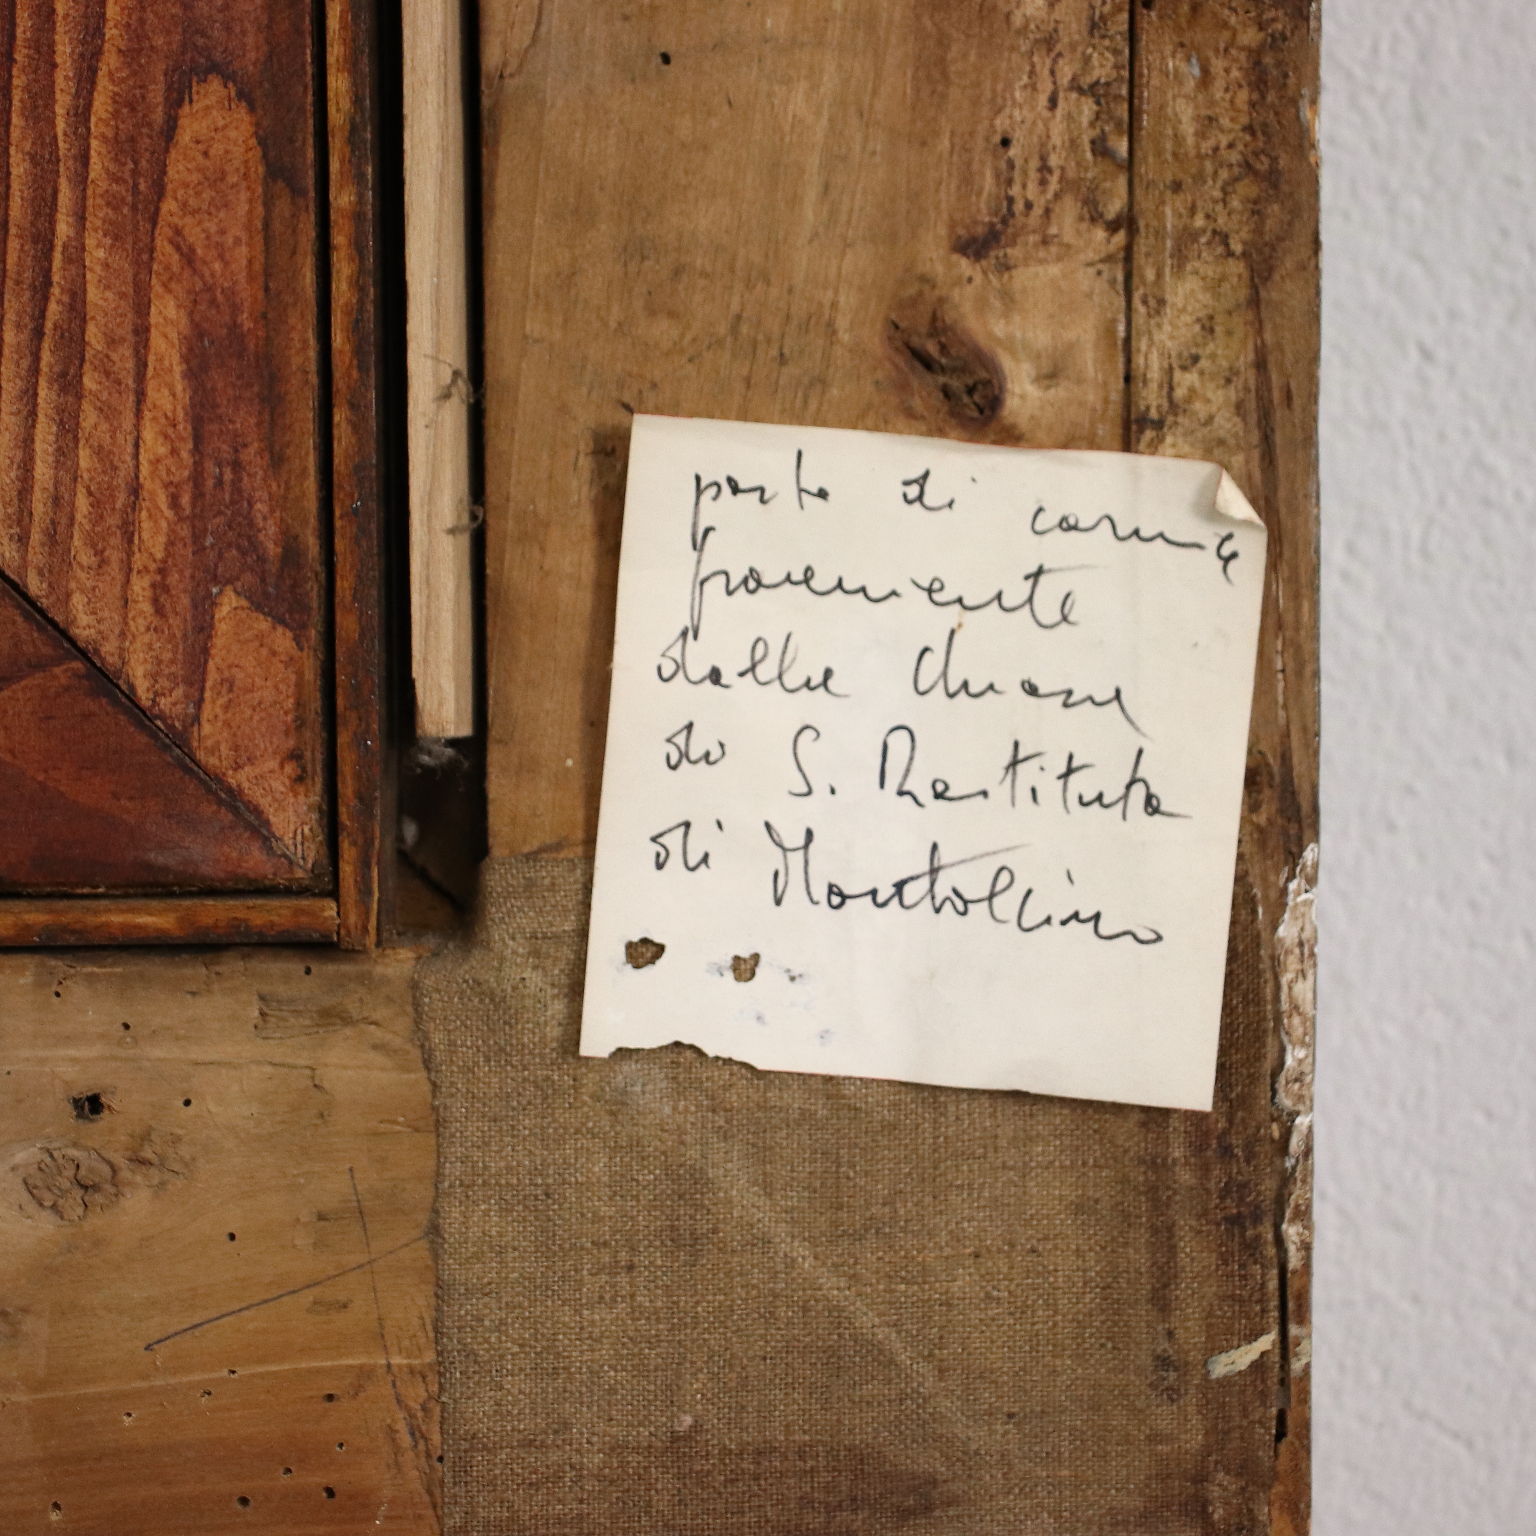 parte di cornice
proveniente
dalle Chiese
di S. Restituta
di Montalcino